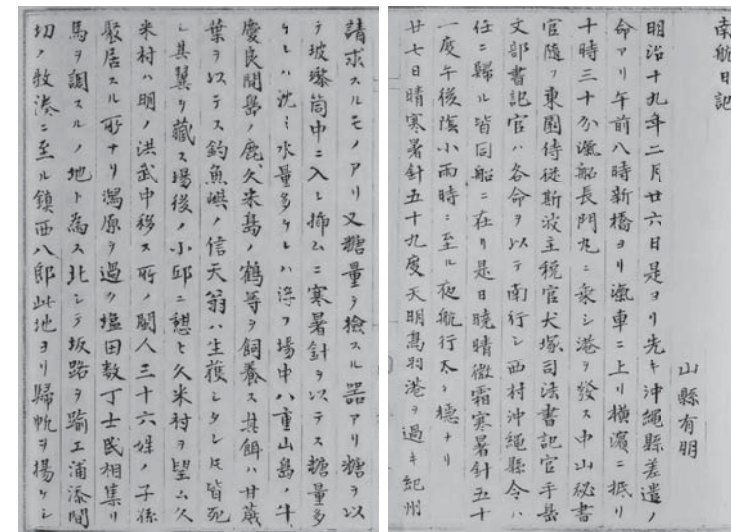 南航日記
山縣有朋
明治十九年二月廿六日是ヨリ先キ沖縄縣差遣ノ
命アリ午前八時新橋ヨリ滊車ニ上リ横濱ニ抵リ
十時三十分滊船長門丸ニ乗シ港ヲ發ス中山秘書
官随フ東園侍從斯波主税官犬塚司法書記官手島
文部書記官ハ各命ヲ以テ南行シ西村沖縄縣令ハ
任ニ歸ル皆同船ニ在リ是日曉晴微霜寒暑針五十
一度午後陰小雨時ニ至ル夜航行太タ穏ナリ
廿七日晴寒暑針五十九度天明鳥羽港ヲ過キ紀州
請求スルモノアリ又糖量ヲ檢スル器アリ糖ヲ以
テ玻瓈筒中ニ入レ挿ムニ寒暑針ヲ以テス糖量多
ケレハ沈ミ水量多ケレハ浮フ場中八重山島ノ牛
慶良間島ノ鹿久米島ノ鶴等ヲ飼養ス其餌ハ甘蔗
葉ヲ以テス釣魚嶼ノ信天翁ハ生獲シタレ圧皆死
シ其翼ヲ藏ス場後ノ小邱ニ憩ヒ久米村ヲ望ム久
米村ハ明ノ洪武中移ス所ノ閩人三十六姓ノ子孫
聚居スル所ナリ潟原ヲ過ク塩田数丁士民相集リ
馬ヲ調スルノ地ト為ス北シテ坂路ヲ踰エ浦添間
切ノ牧湊ニ至ル鎮西八郎此地ヨリ歸帆ヲ揚ケシ